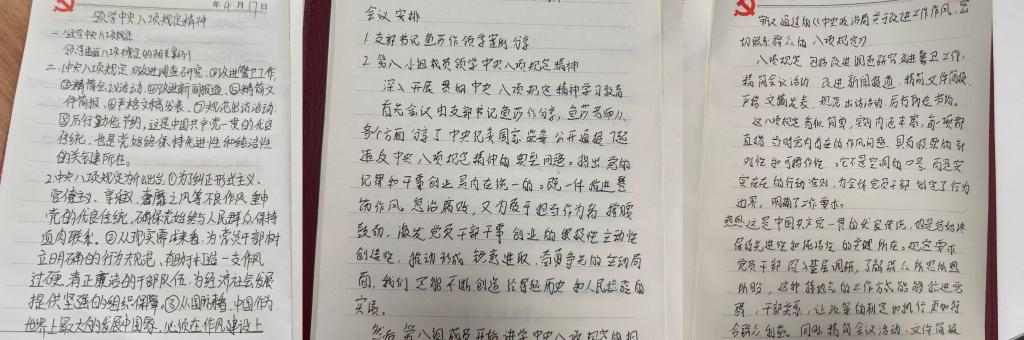 年4月17日
领学中央八项规定精神
一、领学中央八项规定
领学违反八项规定的相关案例
二、中央八项规定 ①改进调查研究、②改进警卫工作、
③精简会议活动、④改进新闻报道、⑤精简文
件简报、⑥严格文稿发表、⑦规范出访活动、
⑧厉行勤俭节约,这是中国共产党一贯的优良
传统,也是党始终保持先进性和纯洁性
的关键所在。
2.中央八项规定为何出台。①为了纠正形式主义、
官僚主义、享乐主义、奢靡之风等不良作风,重申
党的优良传统,确保党始终与人民群众保持
血肉联系。②从现实需求来看,为党员干部树
立明确的行为规范,有助于打造一支作风
过硬、清正廉洁的干部队伍,为经济社会发展
提供坚强的组织保障。③从国际看,中国作为
世界上最大的发展中国家,必须在作风建设上
会议安排
1.支部书记 作领学案例分享
2.第八小组成员领学中央八项规定精神
深入开展贯彻中央八项规定精神学习教育
首先会议由支部书记 作分享,
各个方面分享了中央纪委国家监委公开通报7起
违反中央八项规定精神的典型问题。指出党的
纪律和干事创业是内在统一的。既一体推进整
饬作风、惩治腐败,又为敢于担当作为者撑腰
鼓劲,激发党员干部干事创业的积极性主动性
创造性,推动形成锐意进取、奋勇争先的生动局
面,我们定能不断创造经得起历史和人民检验的
实绩。
然后第八组成员开始进学中央八项规定的相
议通过的《中央政治局关于改进工作作风、密
切联系群众的八项规定》
八项规定包括改进调查研究、改进警卫工作、
精简会议活动、改进新闻报道、精简文件简报、
严格文稿发表、规范出访活动、厉行勤俭节约。
这八项规定看似简单,实则内涵丰富,每一项都
直指当时党内存在的作风问题,具有极强的针
对性和可操作性。它不是空洞的口号,而是实
实在在的行动准则,为全体党员干部划定了行为
边界,明确了工作要求。
感想:这是中国共产党一贯的优良传统,也是党始终
保持先进性和纯洁性的关键所在。规定要求
党员干部深入基层调研,了解群众所思所想
所盼,这种接地气的工作方式能够拉近党
群、干群关系,让政策的制定和执行更加符
合群众利益。同时,精简会议活动、文件简报